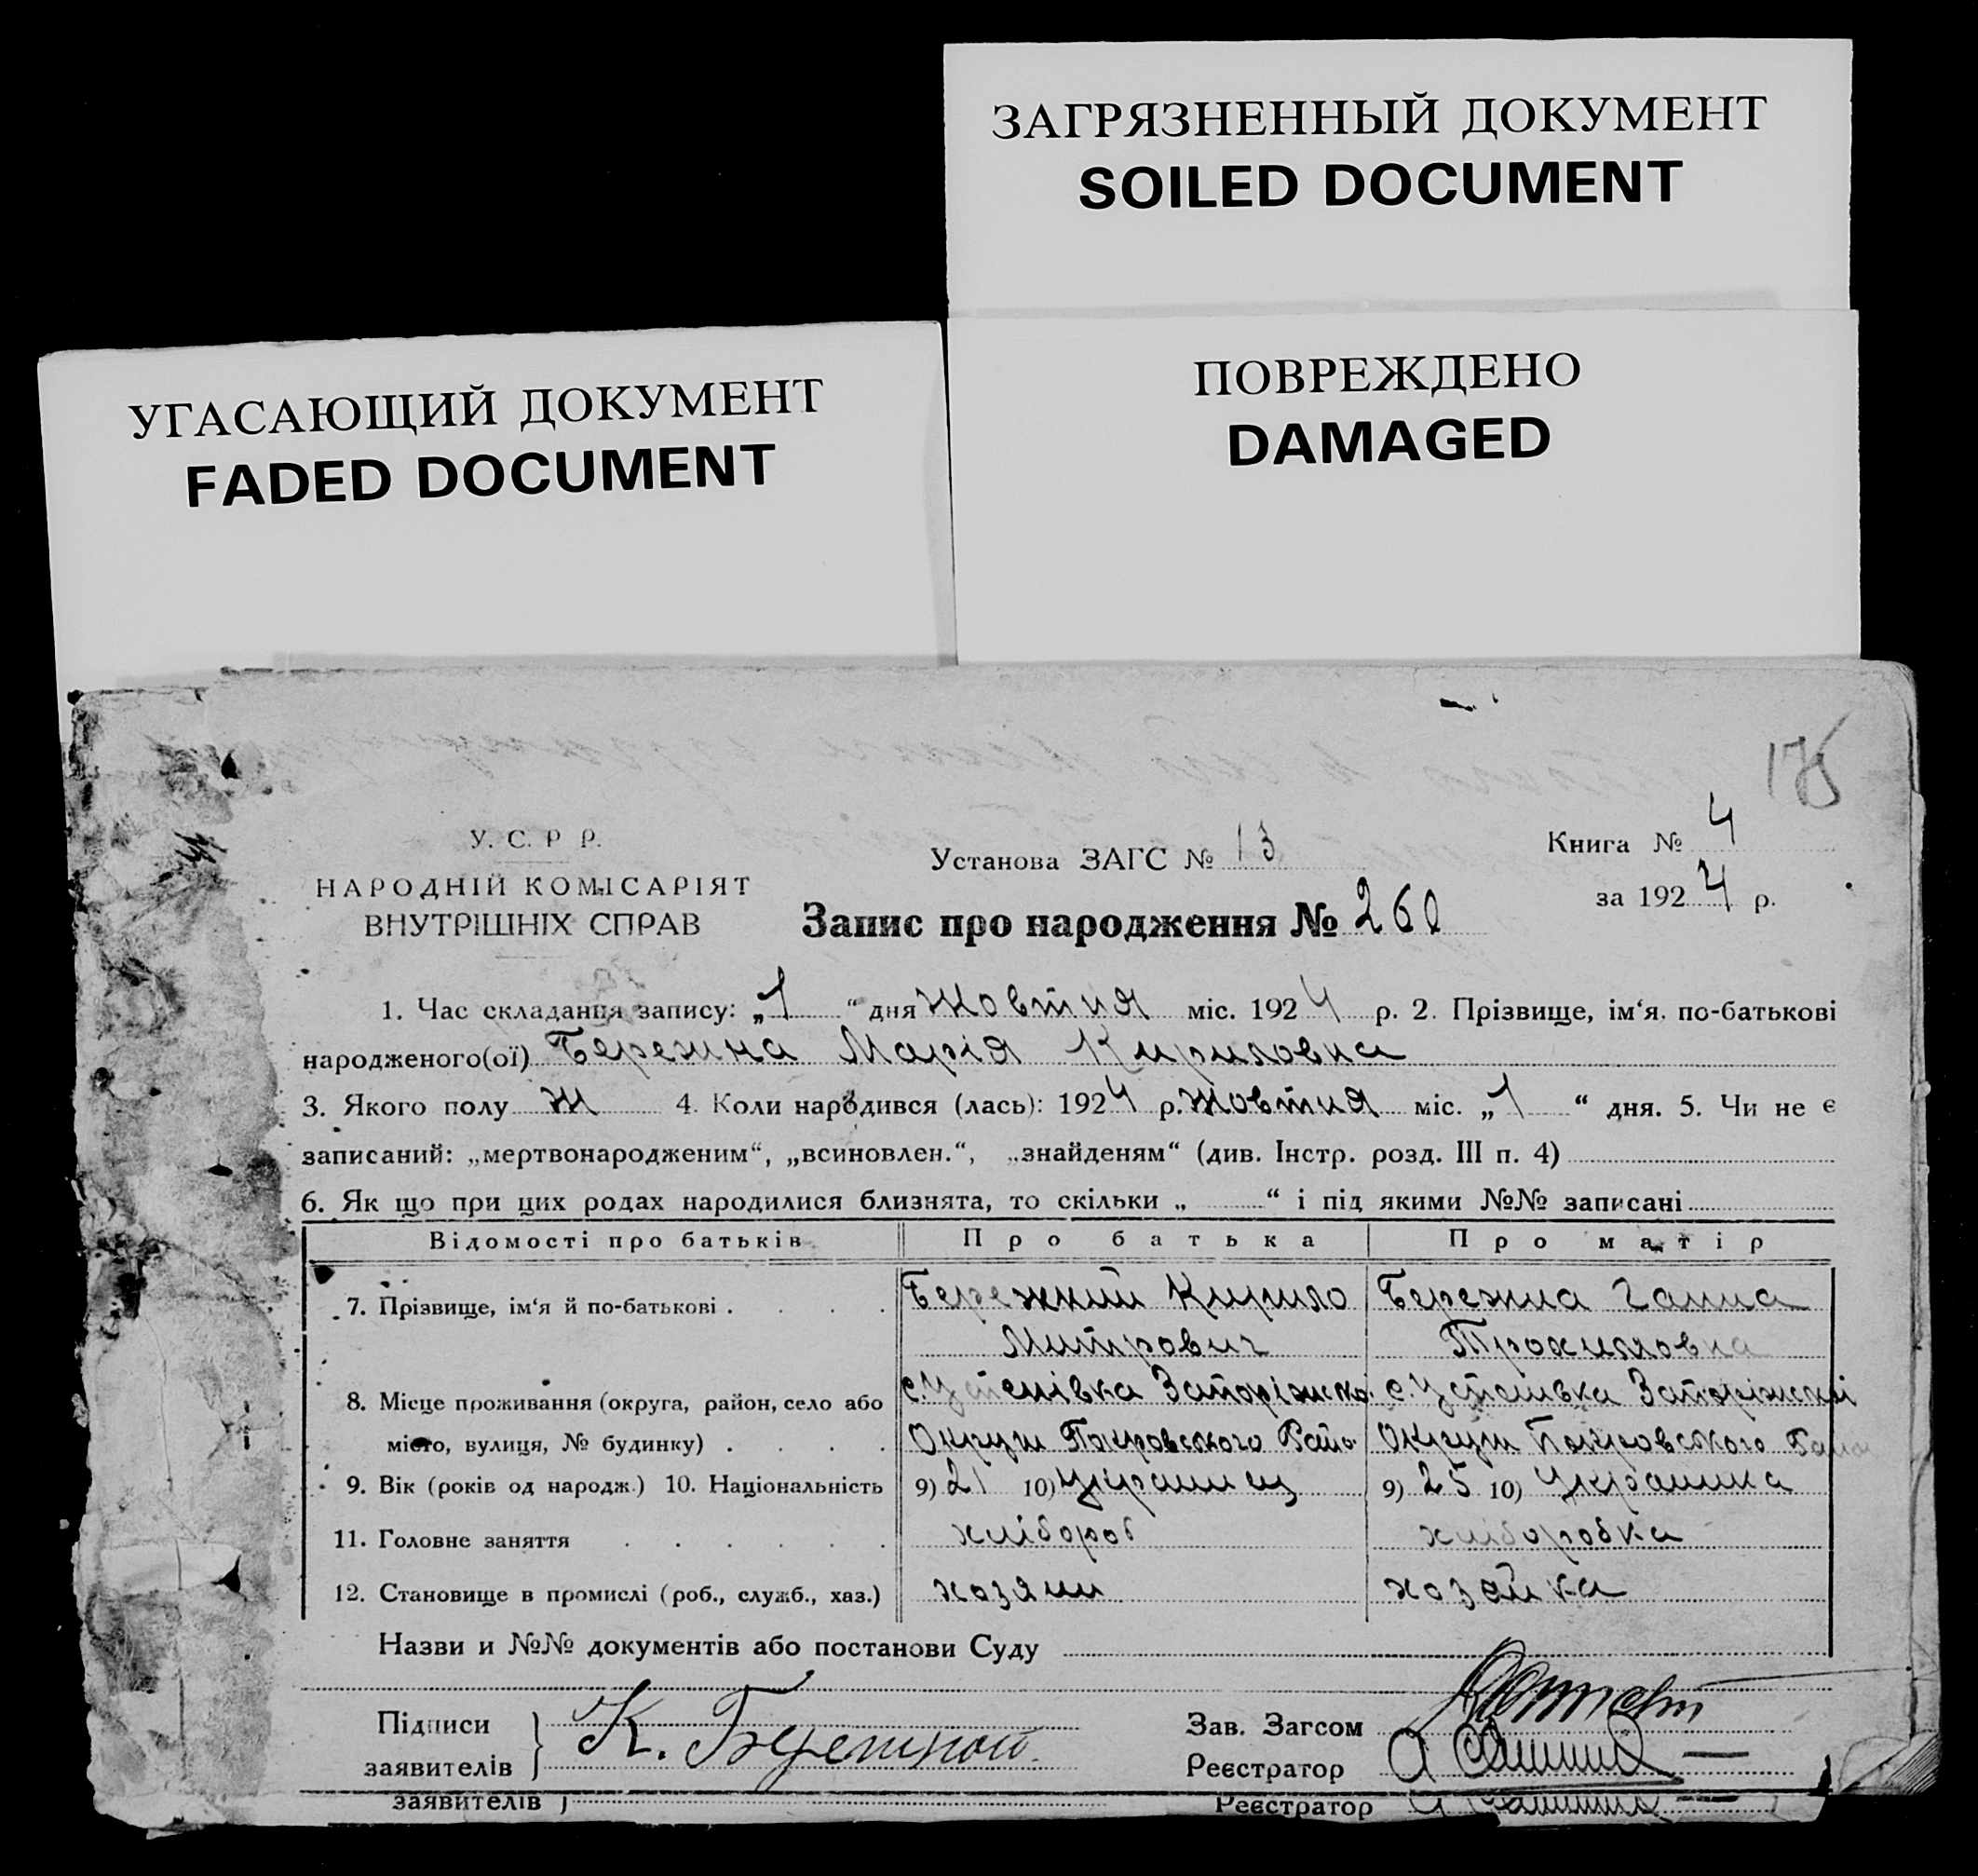 ЗАГРЯЗНЕННЫЙ ДОКУМЕНТ
SOILED DOCUMENT
УГАСАЮЩИЙ ДОКУМЕНТ
FADED DOCUMENT
ПОВРЕЖДЕНО
DAMAGED
175
У. С. Р Р.
НАРОДНІЙ КОМІСАРІЯТ
ВНУТРІШНІХ СПРАВ
Установа ЗАГС № 13
Книга № 4
за 1924 р.
Запис про народження № 260
1. Час складання запису: „1“ дня Жовтня міс. 1924 р. 2. Прізвище, ім‘я. по-батькові
народженого(ої) Бережна Марія Кириловна
3. Якого полу ж 4. Коли народився (лась): 1924 р. Жовтня міс. „1“ дня. 5. Чи не є
записаний: „мертвонародженим“, „всиновлен.“, „знайденям“ (див. Інстр. розд. III п. 4)
6. Як що при цих родах народилися близнята, то скільки „ “ і під якими №№ записані
Відомості про батьків Про батька Про матір
7. Прізвище, ім‘я й по-батькові . . . . Бережний Кирило Бережна Ганна
Митрович Трохимовна
8. Місце проживання (округа, район, село або с. Успенівка Запоріжско. с. Успенивка Запоріжскої
місто, вулиця, № будинку) . . . . Округи Покровського Райо Округи Покровського Райо
9. Вік (років од народж.) 10. Національність 9) 21 10) Украинец 9) 25 10) Украинка
11. Головне заняття . . . . . . хлібороб хліборобка
12. Становище в промислі (роб., служб., хаз.) хозяин хозяйка
Назви и №№ документів або постанови Суду
Підписи
заявителів
К. Бережной
Зав. Загсом
Реєстратор
заявителів Реєстратор